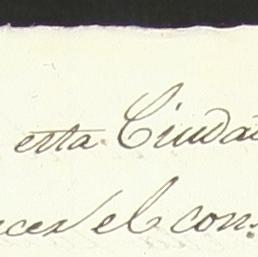 esta Ciudad
el con